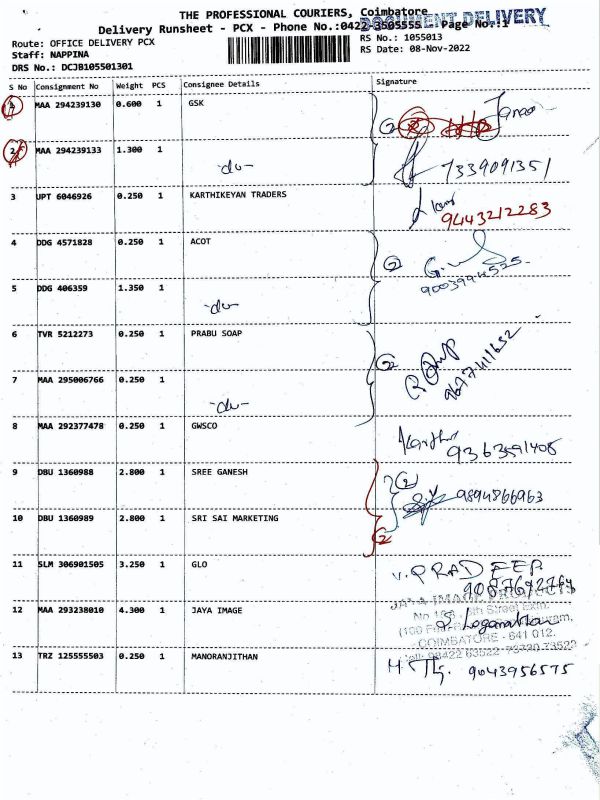 THE PROFESSIONAL COURIERS, Coimbatore
DOCUMENT DELIVERY
Delivery Runsheet - PCX - Phone No.:0422-3505555 Page No.:1
Route: OFFICE DELIVERY PCX
RS No.: 1055013
Staff: NAPPINA
RS Date: 08-Nov-2022
DRS No.: DCJB105501301
S No Consignment No Weight PCS Consignee Details Signature
1 MAA 294239130 0.600 1 GSK
2 MAA 294239133 1.300 1 -do- 7339091351
3 UPT 6046926 0.250 1 KARTHIKEYAN TRADERS 9443212283
4 DDG 4571828 0.250 1 ACOT
5 DDG 406359 1.350 1 -do-
6 TVR 5212273 0.250 1 PRABU SOAP
7 MAA 295006766 0.250 1 -do-
8 MAA 292377478 0.250 1 GWSCO 9363591408
9 DBU 1360988 2.800 1 SREE GANESH 9894866963
10 DBU 1360989 2.800 1 SRI SAI MARKETING
11 SLM 306901505 3.250 1 GLO V. PRADEEP.
JAYA IMAGE PRODUCTS
12 MAA 293238010 4.300 1 JAYA IMAGE S. Loganathan
COIMBATORE - 641 012.
13 TRZ 125555503 0.250 1 MANORANJITHAN 9043956575